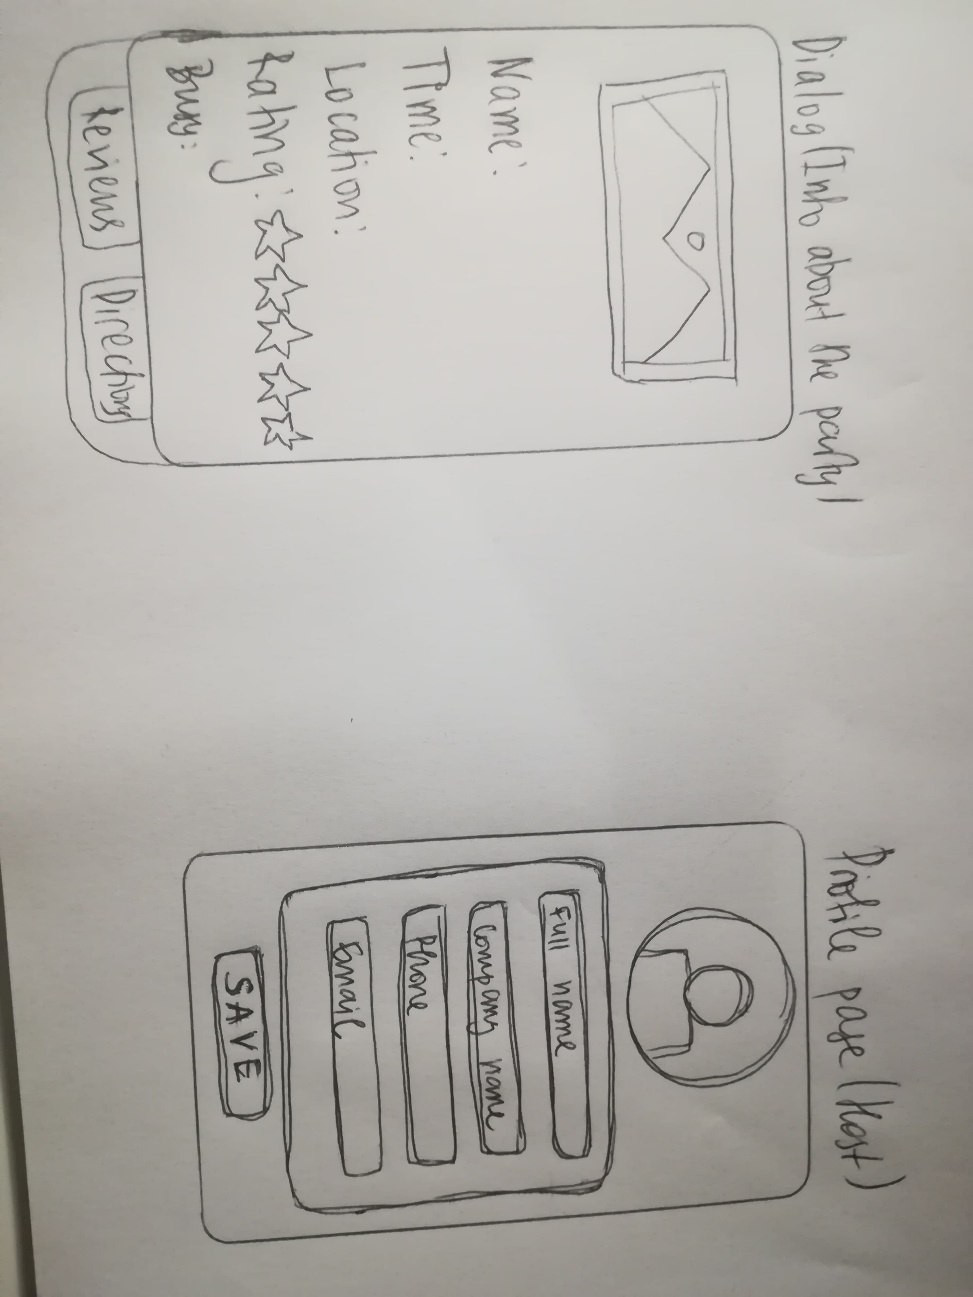 Dialog (Info about the party)
Name:
Time:
Location:
Rating:
Busy:
Reviews
Directions
Profile page (Host)
Full name
Company name
Phone
Email
SAVE